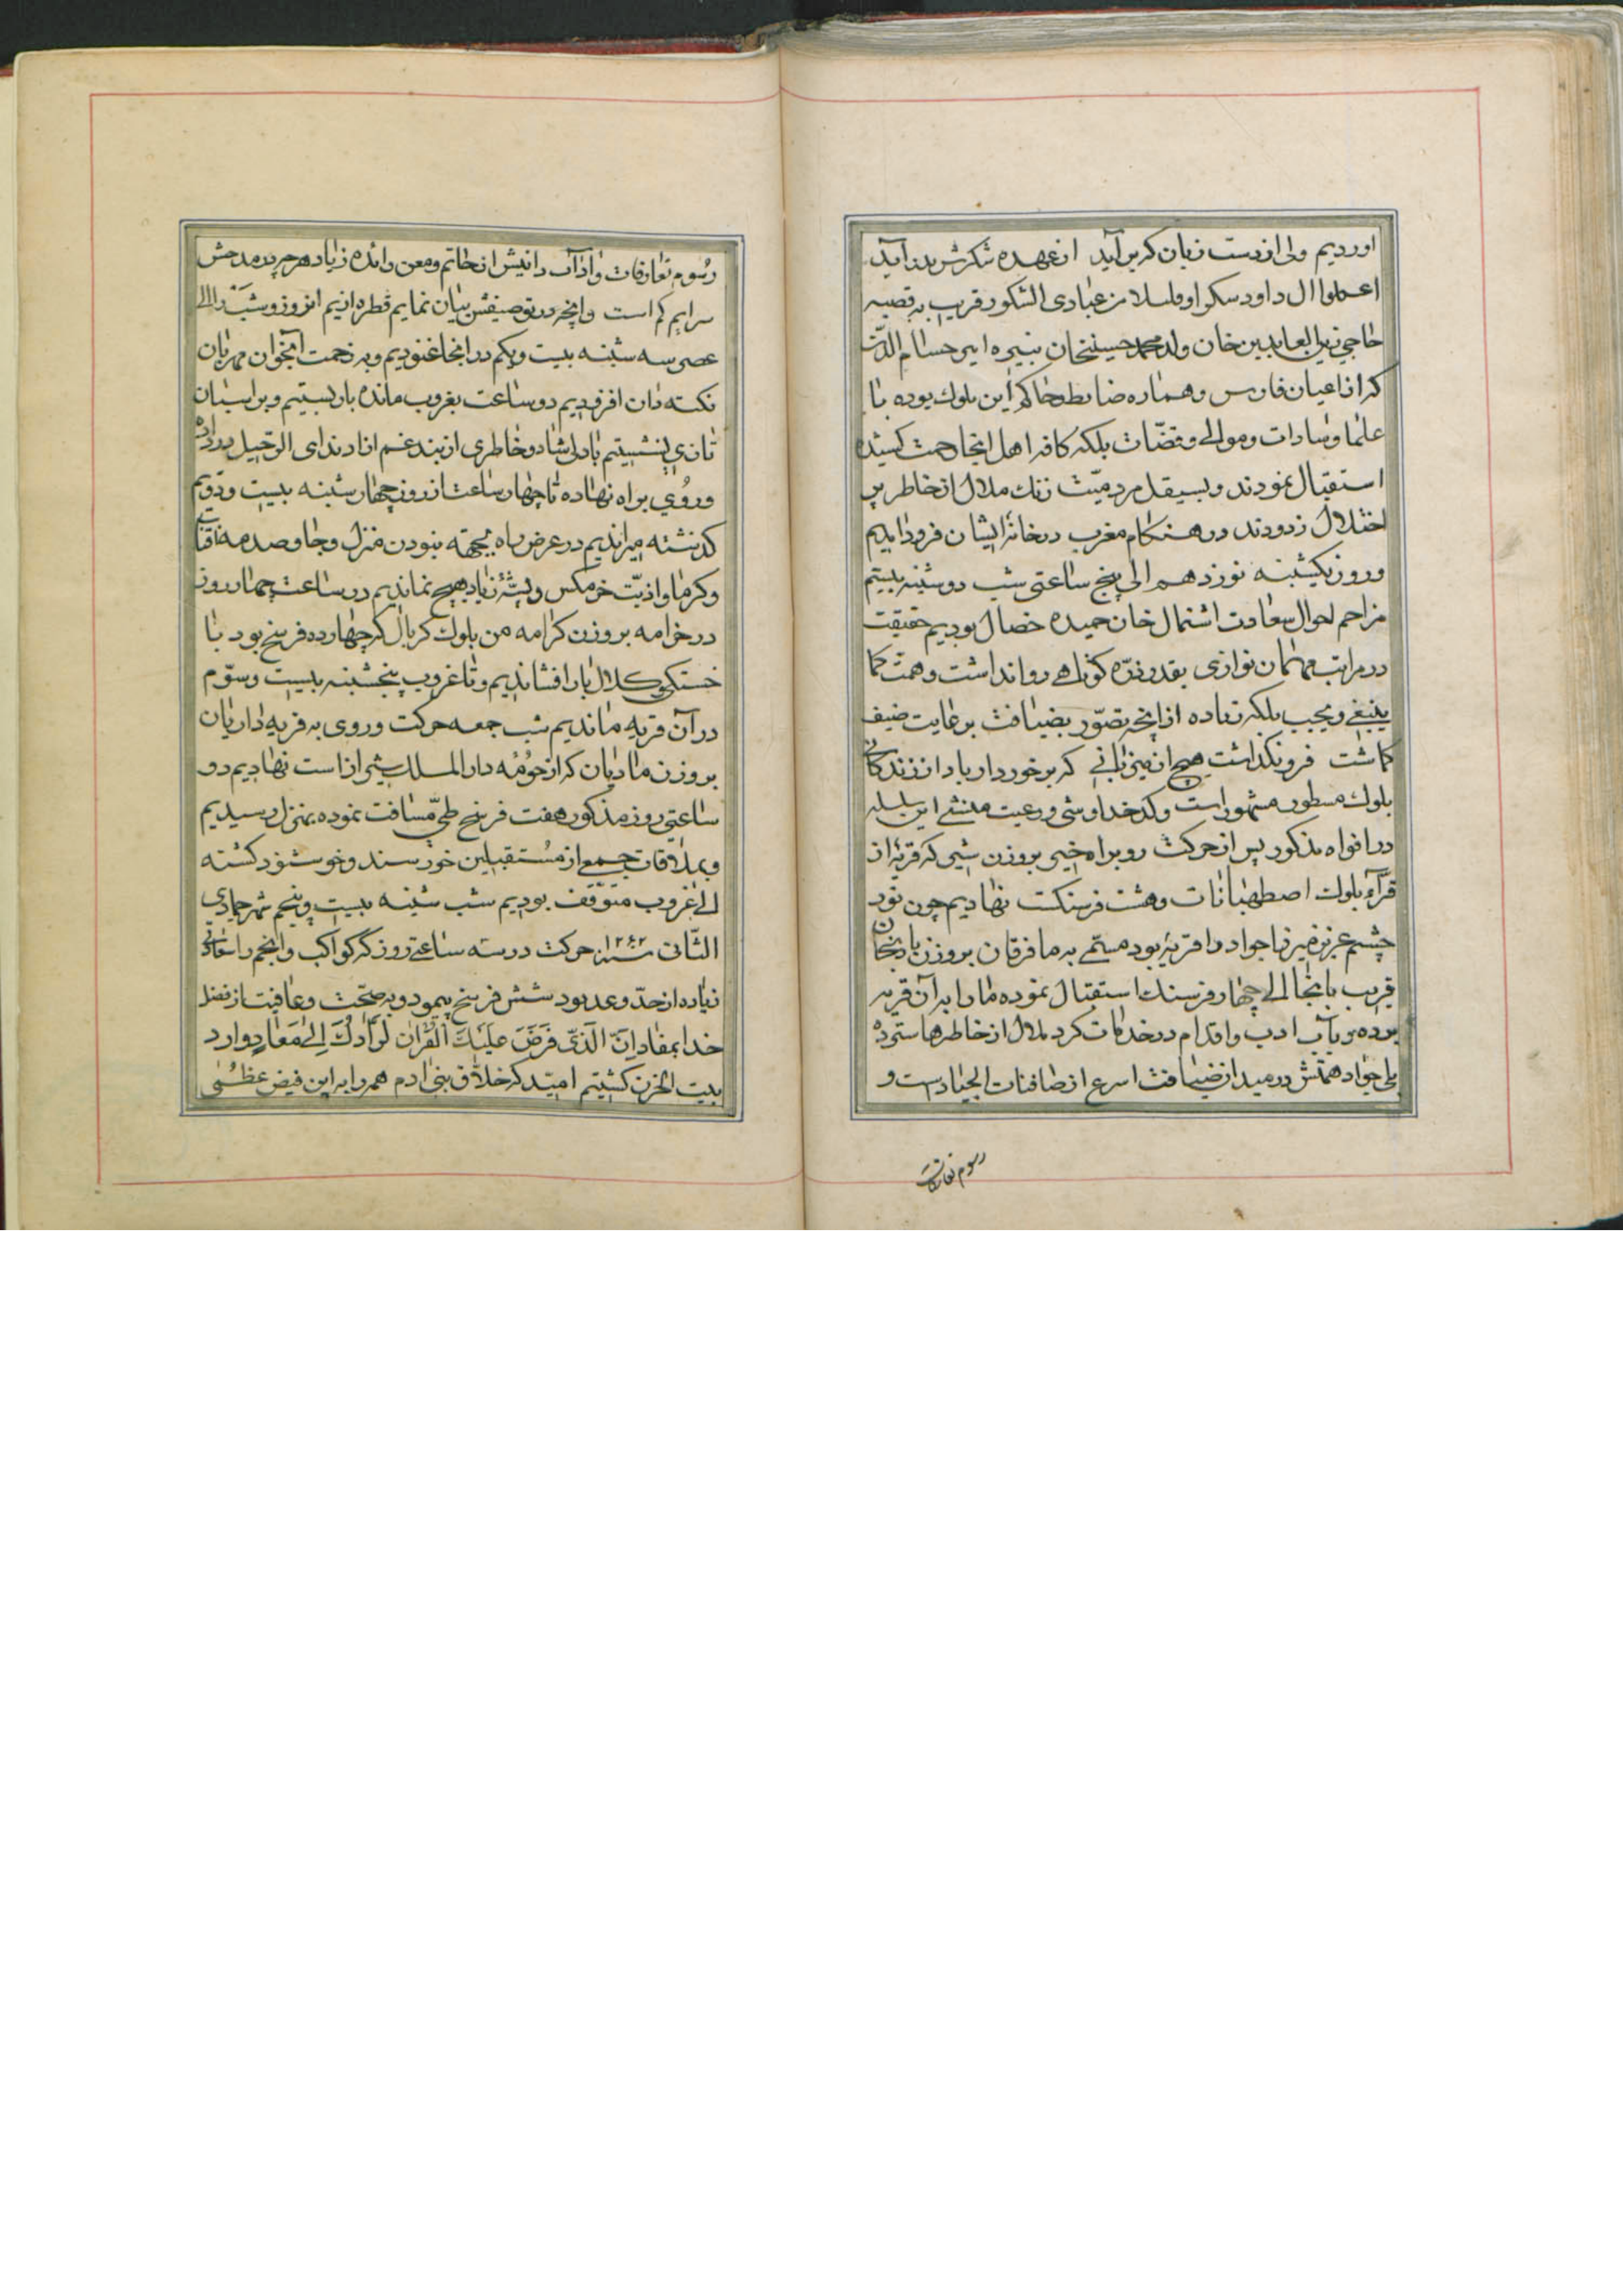 اوردیم ولی از دست زبان که برآید از عهده شکرش بدر آید
اعملوا ال داود سکرا و قلیلا من عبادی الشکور قریب به قصبه
حاجی زین العابدین خان ولد محمد حسینخان نبیره امیر حسام الدین
که از اعیان فارس و هماره ضابط و حاکم این بلوک بوده با
علما و سادات و موالی و قضّات بلکه کافه اهل انجا زحمت کشیده
استقبال نمودند و بسیقل مردمیّت زنک ملال از خاطر پر
اختلال زدودند در هنکام مغرب در خانه ایشان فرود امدیم
و روز یکشنبه نوزدهم الی پنج ساعتی شب دوشنبه بیستم
مزاحم احوال سعادت اشتمال خان حمیده خصال بودیم حقیقت
در مراتب مهمان نوازی بقدر ذرّه کوتاهی روا نداشت و همت کما
ینبغی و یجب بلکه زیاده از انچه تصوّر بضیافت بر عایت ضیف
کماشت فرو نکذاشت هیچ از میزبانی که برخوردار باد از زندکانی
بلوک مسطور مشهور است و کدخدا وشی و رعیت منشی این سلسله
در افواه مذکور پس از حرکت رو براه خیر بروزن شیر که قریهٔ از
قرآء بلوک اصطهبانات و هشت فرسنکست نهادیم چون نور
چشم عزیز میرزا جواد را قریهٔ بود مسمّی به مافرقان بروزن بادنجان
قریب بانجا الی چهار فرسنک استقبال نموده ما را به آن قریه
بوده و بآب ادب و اقدام در خدمات کرد ملال از خاطرها سترده
بلی جواد همتش در میدان ضیافت اسرع از صافنات الجیاد است و
رسوم تعارفات
رسوم تعارفات و آداب دانیش از حاتم و معن زائده زیاد هر چه در مدحش
سرایم کم است و انچه در توصیفش بیان نمایم قطره از یم انروز و شب را الی
عصر سه شنبه بیست و یکم در انجا غنودیم و به زحمت آنخوان مهربان
نکته دان افزودیم دو ساعت بغروب مانده بار بستیم و بر اسبان
تازی نشستیم با دلی شاد و خاطری از بند غم ازاد ندای الرّحیل در داده
و روی براه نهاده تا چهار ساعت از روز چهارشنبه بیست و دویم
کذشته میراندیم در عرض راه بجهته نبودن منزل و جا و صدمه آفتاب
و کرما و اذیّت خرمکس و پشّهٔ زیاد هیچ نماندیم در ساعت چهار روز
در خرامه بروزن کرامه من بلوک کربال که چهارده فرسخ بود با
خستکی و کلال بار افشاندیم و تا غروب پنجشنبه بیست و سوّم
در آن قریه ماندیم شب جمعه حرکت و روی به قریه داریان
بروزن مادیان که از حومه دار الملک شیراز است نهادیم دو
ساعتی روز مذکور هفت فرسخ طیّ مسافت نموده بمنزل رسیدیم
و بملاقات جمعی از مستقبلین خورسند و خوشنود کشته
الی غروب متوّقف بودیم شب شنبه بیست و پنجم شهر جمادی
الثّانی سنه ۱۲۶۲ حرکت در سه ساعتی روز که کواکب و انجم را
زیاده از حدّ و عد بود شش فرسخ پیمود و به صحّت و عافیت از فضل
خدا بمفاد اِنَّ الَّذی فَرَضَ عَلَیْکَ الْقُرْآنَ لَرادُّکَ اِلی مَعادٍ وارد
بیت الحزن کشتیم امید که خلّاق بنی ادم همه را به این فیض عظمی